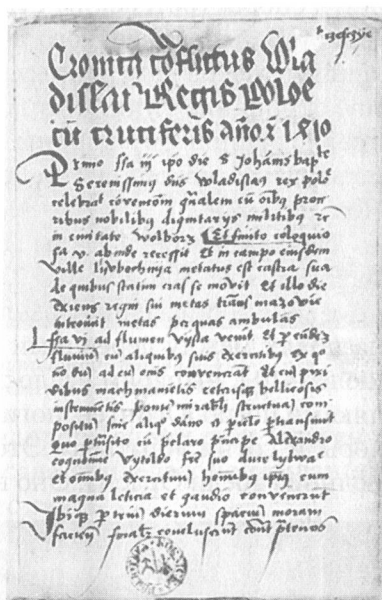 Cronica cõflictus Wla
dislai Regis polõe
cũ cruciferis año xi 1410
Primo ffa iij ipo die S Johãnis bapte
Serenissimus dñs Wladislaus rex polõe
celebrat cõvencõm gñalem cũ oĩbus proce
ribus nobilibus dignitarijs militibus
in civitate wolborz Et finito coloquio
ffa v. abinde recessit Et in campo eiusdem
ville lubochnija metatus est castra sua
de quibus statim cras se movit Et illo die
exiens regni sui metas trãns mazovie
intrauit metas per quas ambulãs
ffa vj ad flumen vysla venit Et per eũdẽ
fluviũ cũ aliquibus suis exercitibus ex
ad eũ convenerãt Et cũ
dibus machinamentis ceterisque bellicosis
instrumentis pontẽ mirabili structura com
positum sine aliquo dãno et periclo trãnsivit
quo trãnsito cũ prelaro prĩcipe Alexandro
cognoĩe Vytoldo fre suo duce lytwae
et omnibus exercituum hominibus ipsius cum
magna leticia et gaudio convenerunt
Ibique per trium dierum spacium moram
faciens concluserunt